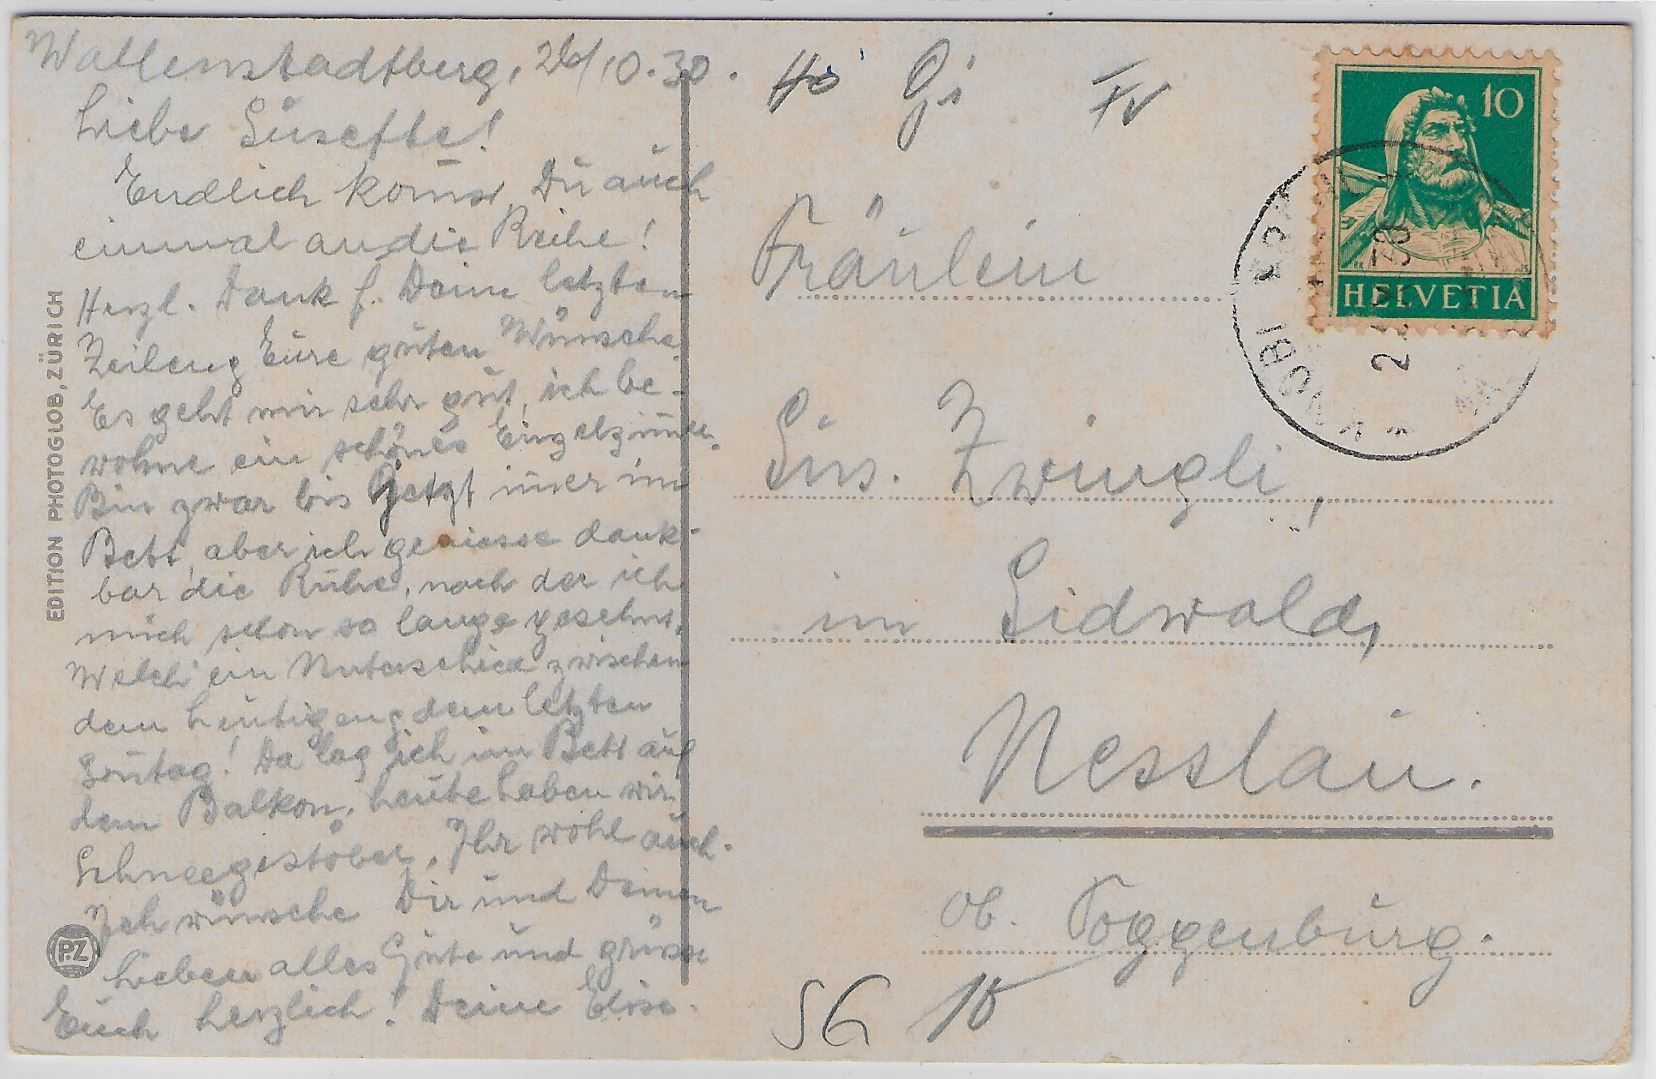 Wallenstadtberg, 26/10.30.
Liebe Susette!
Endlich koms̄t Du auch
einmal an die Reihe!
Herzl. Dank f. Deine letzten
Zeilen Eure guten Wünsche.
Es geht mir sehr gut, ich be-
wohne ein schönes Einzelzim̄er.
Bin zwar bis jetzt im̄er im
Bett, aber ich geniesse dank-
bar die Ruhe, nach der ich
mich schon so lange gesehnt.
Welch ein Unterschied zwischen
dem heutigen dem letzten
Son̄tag! Da lag ich im Bett auf
dem Balkon, heute haben wir
Schneegestöber, Ihr wohl auch.
Ich wünsche Dir und Deinen
Lieben alles Gute und grüsse
Euch herzlich! Deine Elise.
EDITION PHOTOGLOB, ZÜRICH
P.Z
Fr
10
HELVETIA
Fräulein
Sus. Zwingli,
im Sidwald,
Nesslau.
ob. Toggenburg.
SG 10